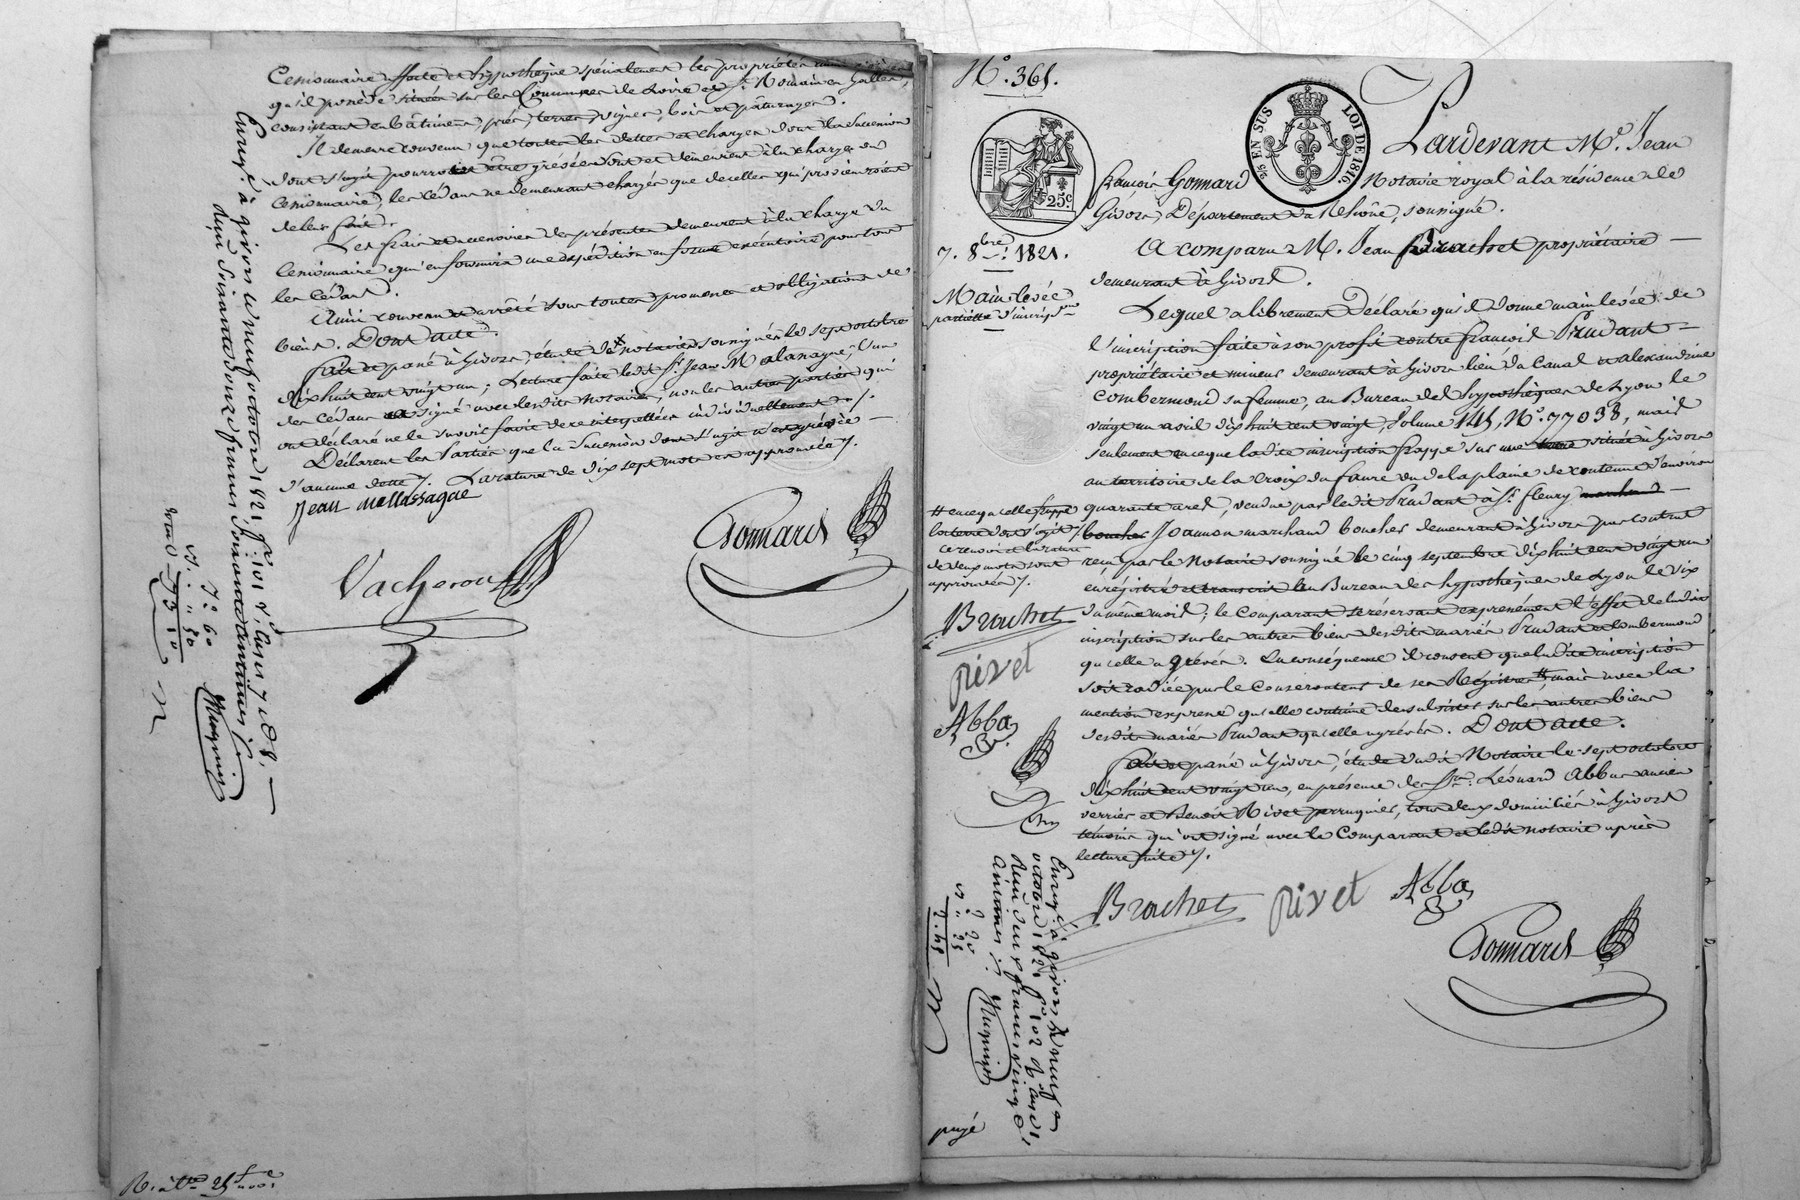 Cessionnaire affecte et hypothèque spécialement les propriétés
qu'il possède situées sur les Communes de Loire et St. Romain en Galles,
consistant en bâtiments, prés, terres, vignes, bois et pâturages.
Il demeure convenu que toutes les dettes et charges dont la Succession
dont s'agit pourroit être grevée sont et demeurent à la charge du
Cessionnaire, les cédans ne demeurant chargés que de celles qui proviendroient
de leur fait.
Les frais et accessoires des présentes demeurent à la charge du
Cessionnaire qui en fournira une expédition en forme exécutoire pour tous
les cédans.
Ainsi convenu et arrêté sous toutes promesses et obligations de
biens. Dont acte.
fait et passé à Givors, étude de notaire soussigné le sept octobre
dix huit cent vingt un; Lecture faite ledit Sr. Jean Malassagne, l'un
des cédans a signé avec lesdits notaires, non les autres parties qui
ont déclaré ne le savoir faire de ce interpellées individuellement.
Déclarent les Parties que la Succession dont s'agit n'est grévée
d'aucune dette. La rature de dix sept mots est approuvée.
Jean Mallassagne
Vacheron
Gonnard
Enregé. à givors le neuf octobre 1821 fo. 101 Vo. Cases 7 et 8,
reçu Soixante douze francs Soixante centimes
7: 60
73 10
Mugnier
N°. 365.
25c.
25c. EN SUS
LOI DE 1816.
7. 8bre. 1821.
Mainlevée
partielle d'inscripon
Pardevant Me. Jean
françois Gonnard Notaire royal à la résidence de
Givors, Département du Rhône, soussigné.
A comparu M. Jean Brachet propriétaire
demeurant à Givors.
Lequel a librement déclaré qu'il donne mainlevée de
l'inscription faite à son profit contre françois Prudant
propriétaire et mineur demeurant à Givors lieu du Canal et alexandrine
Combermond sa femme, au Bureau des hypothèques de Lyon le
vingt un avril dix huit cent vingt, Volume 145, N°. 77038, mais
seulement en ce que ladite inscription frappe sur une terre située à Givors
au territoire de la Croix du faure ou de la plaine de contenue d'environ
quarante ares, vendue par ledit Prudant à Sr. fleury marchand
boucher Jaamon marchand boucher demeurant à Givors par contrat
reçu par le Notaire soussigné le cinq septembre dix huit cent vingt un
enrégistré et transcrit au Bureau des hypothèques de Lyon le dix
du même mois; le Comparant se réservant expressément l'effet de ladite
inscription sur les autres biens desdits mariés Prudant et Combermond
qu'elle a grévés. En conséquence il consent que ladite inscription
soit radiée par le Conservateur de ses Régistres #, mais avec la
mention expresse qu'elle continue de subsister sur les autres biens
desdits mariés Prudant qu'elle a grévés. Dont acte.
fait et passé à Givors, étude dudit Notaire le sept octobre
dix huit cent vingt un, en présence de Srs. Léonard Abba ancien
verrier et Benoît Rivet perruquier, tous deux domiciliés à Givors
témoins qui ont signé avec le Comparant et ledit notaire après
lecture faite.
# en ce qu'elle frappe
la terre dont s'agit
ce renvoi et la rature
de deux mots sont
approuvés.
Brachet
Rivet
Abba
Brachet Rivet Abba
Gonnard
Enregé. à givors le neuf
octobre 1821 fo. 102 Ro. Case 1,
reçu deux francs vingt
centimes
2 20
2. 45
Mugnier
payé